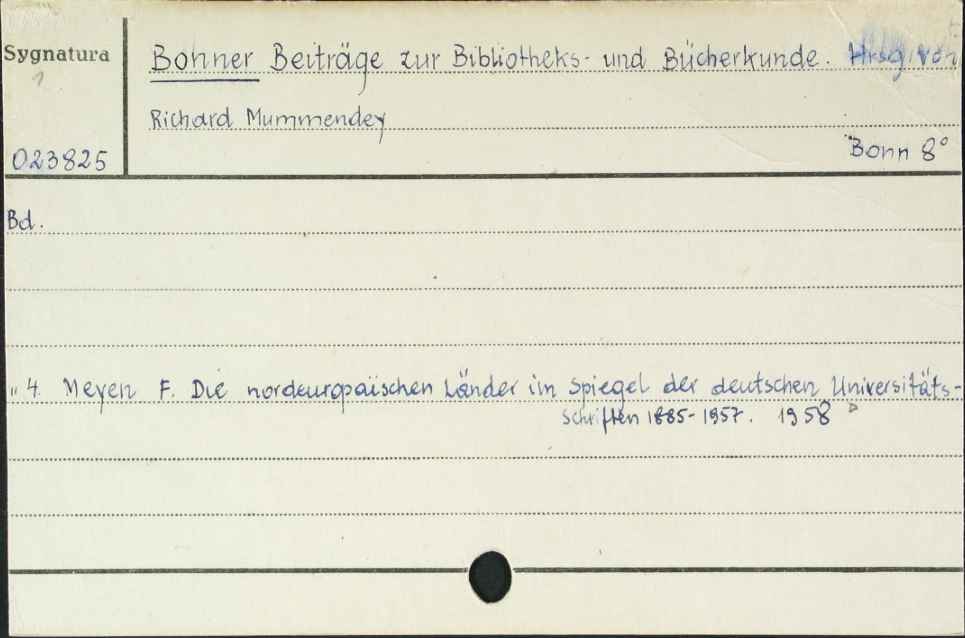 Sygnatura
1
023825
Bohner Beiträge zur Bibliotheks- und Bücherkunde. Hrsg. von
Richard Mummendey
Bonn 8°
Bd.
" 4. Meyen F. Die nordeuropäischen Länder im Spiegel der deutschen Universitäts-
schriften 1885-1957. 1958